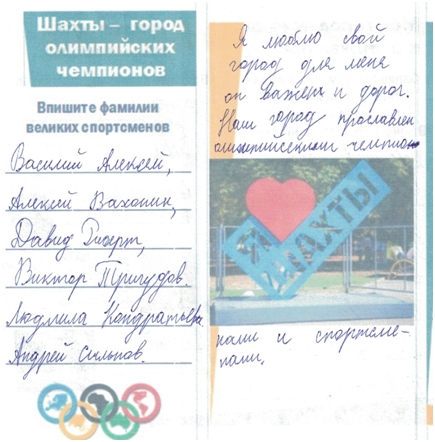 Шахты – город
олимпийских
чемпионов
Впишите фамилии
великих спортсменов
Василий Алексей,
Алексей Вахонин,
Давид Ригерт,
Виктор Тригудов.
Людмила Кондратьева
Андрей Сильнов.
Я люблю свой
город для меня
он важен и дорог.
Наш город прославлен
олимпийскими чемпио-
Я
ШАХТЫ
нами и спортсме-
нами.